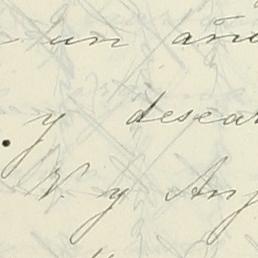 un año
y desear
V. y Ang